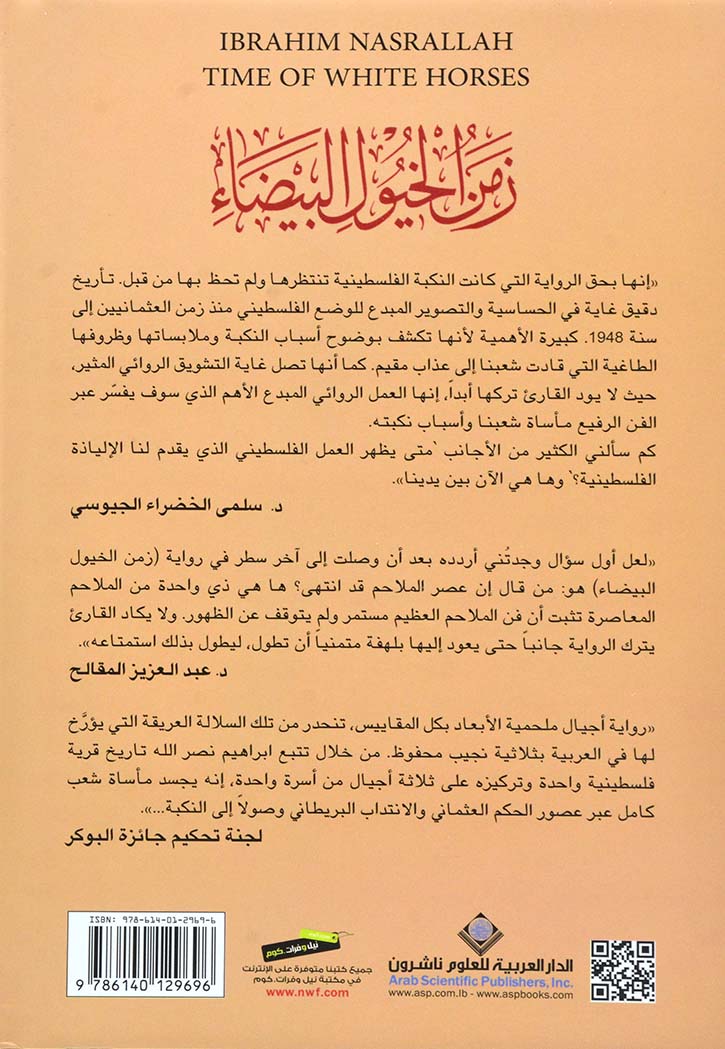 IBRAHIM NASRALLAH
TIME OF WHITE HORSES
زَمَنُ الخُيُولِ البَيْضَاءِ
«إنها بحق الرواية التي كانت النكبة الفلسطينية تنتظرها ولم تحظ بها من قبل. تأريخ
دقيق غاية في الحساسية والتصوير المبدع للوضع الفلسطيني منذ زمن العثمانيين إلى
سنة 1948. كبيرة الأهمية لأنها تكشف بوضوح أسباب النكبة وملابساتها وظروفها
الطاغية التي قادت شعبنا إلى عذاب مقيم. كما أنها تصل غاية التشويق الروائي المثير،
حيث لا يود القارئ تركها أبداً، إنها العمل الروائي المبدع الأهم الذي سوف يفسّر عبر
الفن الرفيع مأساة شعبنا وأسباب نكبته.
كم سألني الكثير من الأجانب ‛متى يظهر العمل الفلسطيني الذي يقدم لنا الإلياذة
الفلسطينية؟‛ وها هي الآن بين يدينا».
د. سلمى الخضراء الجيوسي
«لعل أول سؤال وجدتُني أردده بعد أن وصلت إلى آخر سطر في رواية (زمن الخيول
البيضاء) هو: من قال إن عصر الملاحم قد انتهى؟ ها هي ذي واحدة من الملاحم
المعاصرة تثبت أن فن الملاحم العظيم مستمر ولم يتوقف عن الظهور. ولا يكاد القارئ
يترك الرواية جانباً حتى يعود إليها بلهفة متمنياً أن تطول، ليطول بذلك استمتاعه».
د. عبد العزيز المقالح
«رواية أجيال ملحمية الأبعاد بكل المقاييس، تنحدر من تلك السلالة العريقة التي يؤرَّخ
لها في العربية بثلاثية نجيب محفوظ. من خلال تتبع ابراهيم نصر الله تاريخ قرية
فلسطينية واحدة وتركيزه على ثلاثة أجيال من أسرة واحدة، إنه يجسد مأساة شعب
كامل عبر عصور الحكم العثماني والانتداب البريطاني وصولاً إلى النكبة...».
لجنة تحكيم جائزة البوكر
ISBN: 978-614-01-2969-6
9 786140 129696
نيل وفرات.كوم
جميع كتبنا متوفرة على الإنترنت
في مكتبة نيل وفرات.كوم
www.nwf.com
الدار العربية للعلوم ناشرون
Arab Scientific Publishers, Inc.
www.asp.com.lb - www.aspbooks.com